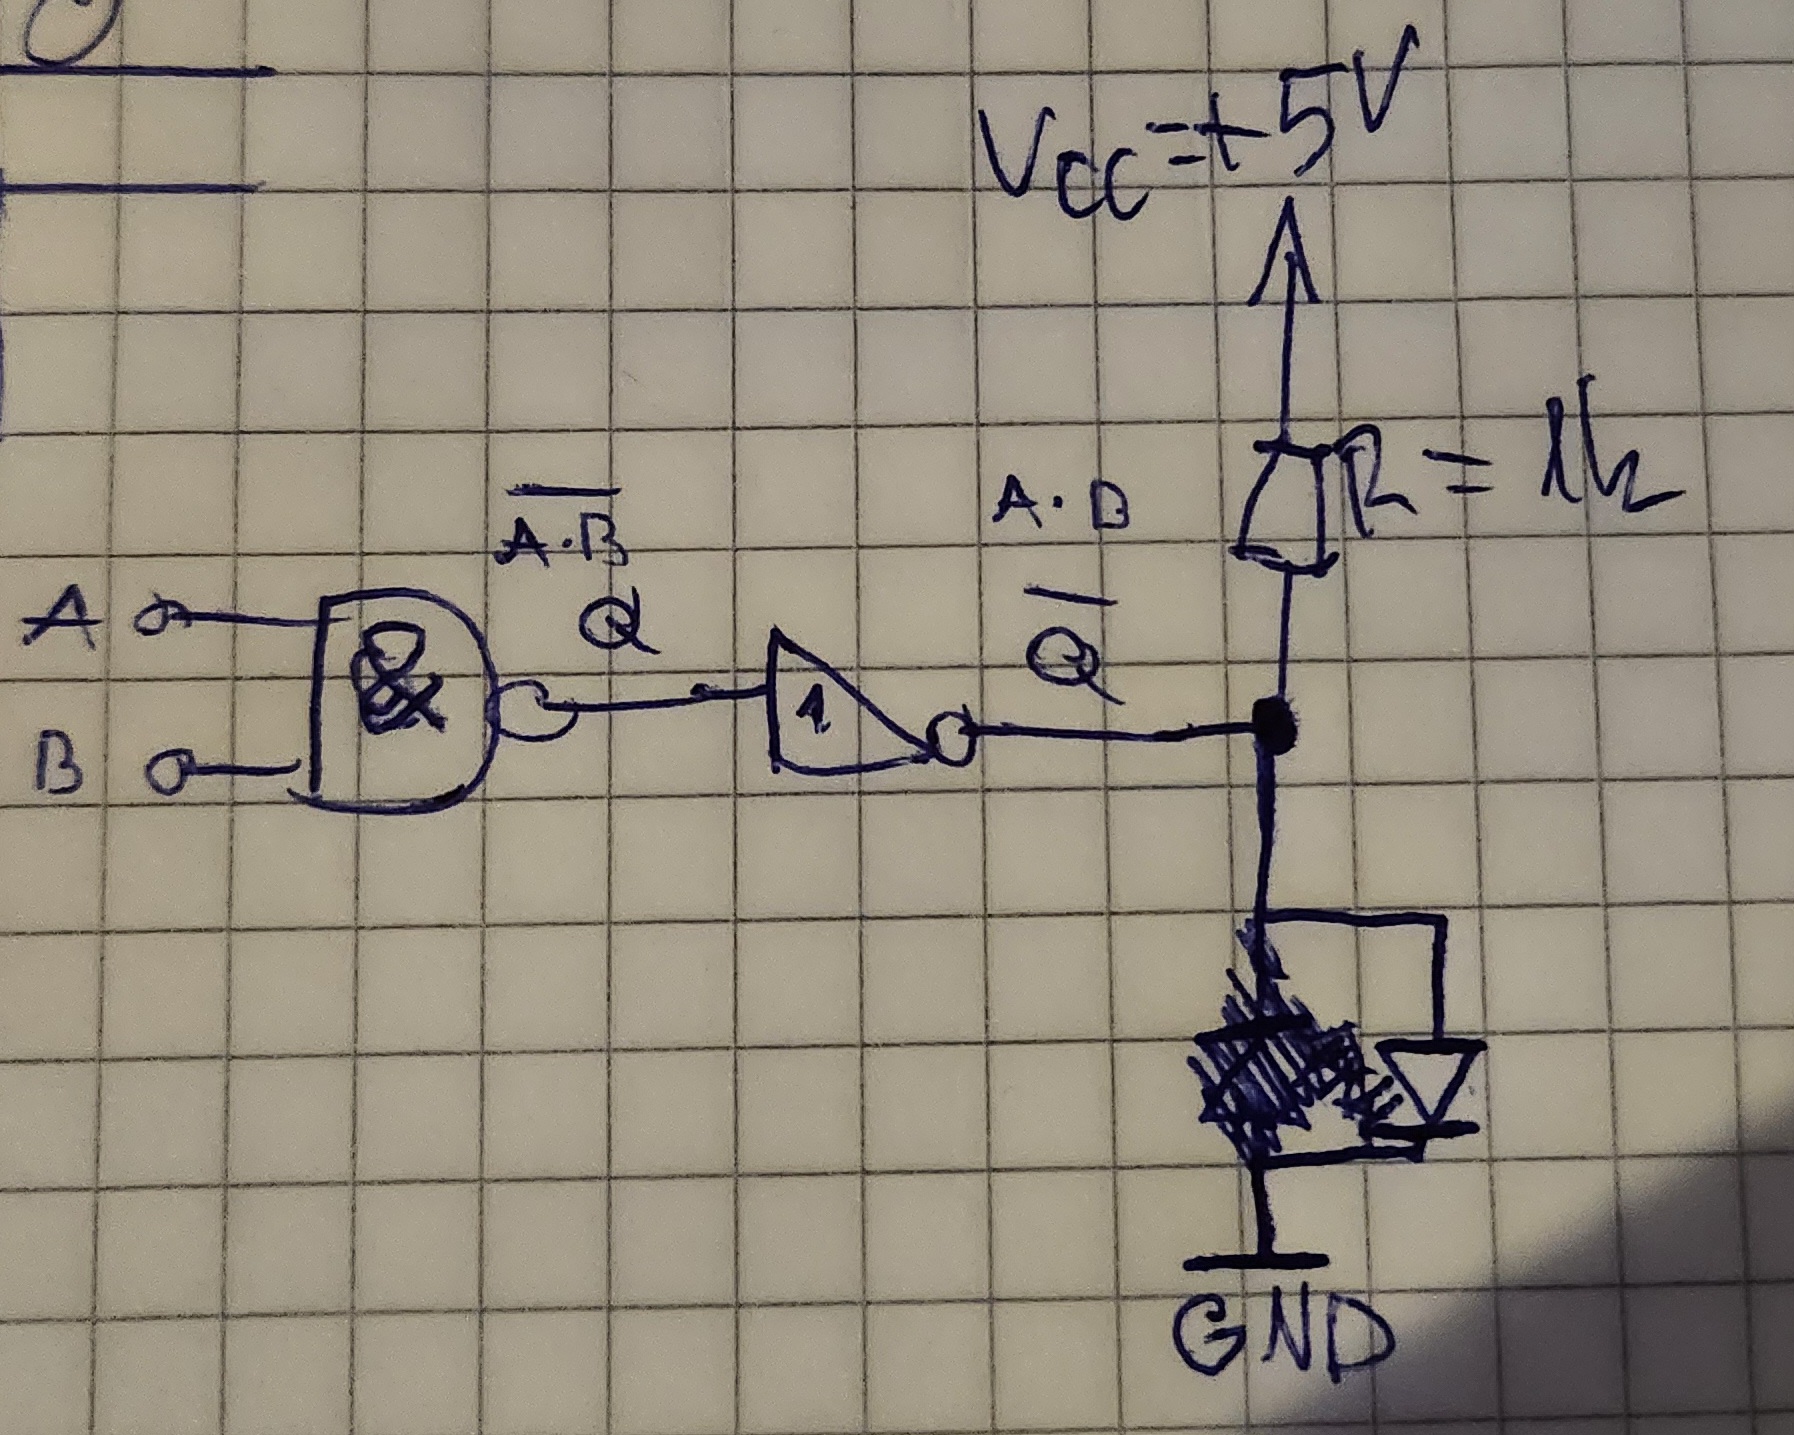 Vcc=+5V
R = 1k
A·B̅
A·B
A
&
Q
1
Q̅
B
GND